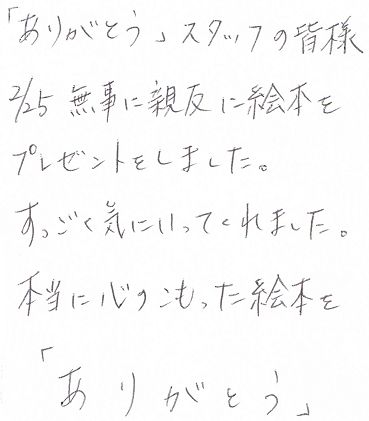 「ありがとう」スタッフの皆様
2/25 無事に親友に絵本を
プレゼントをしました。
すっごく気にいってくれました。
本当に心のこもった絵本を
「ありがとう」